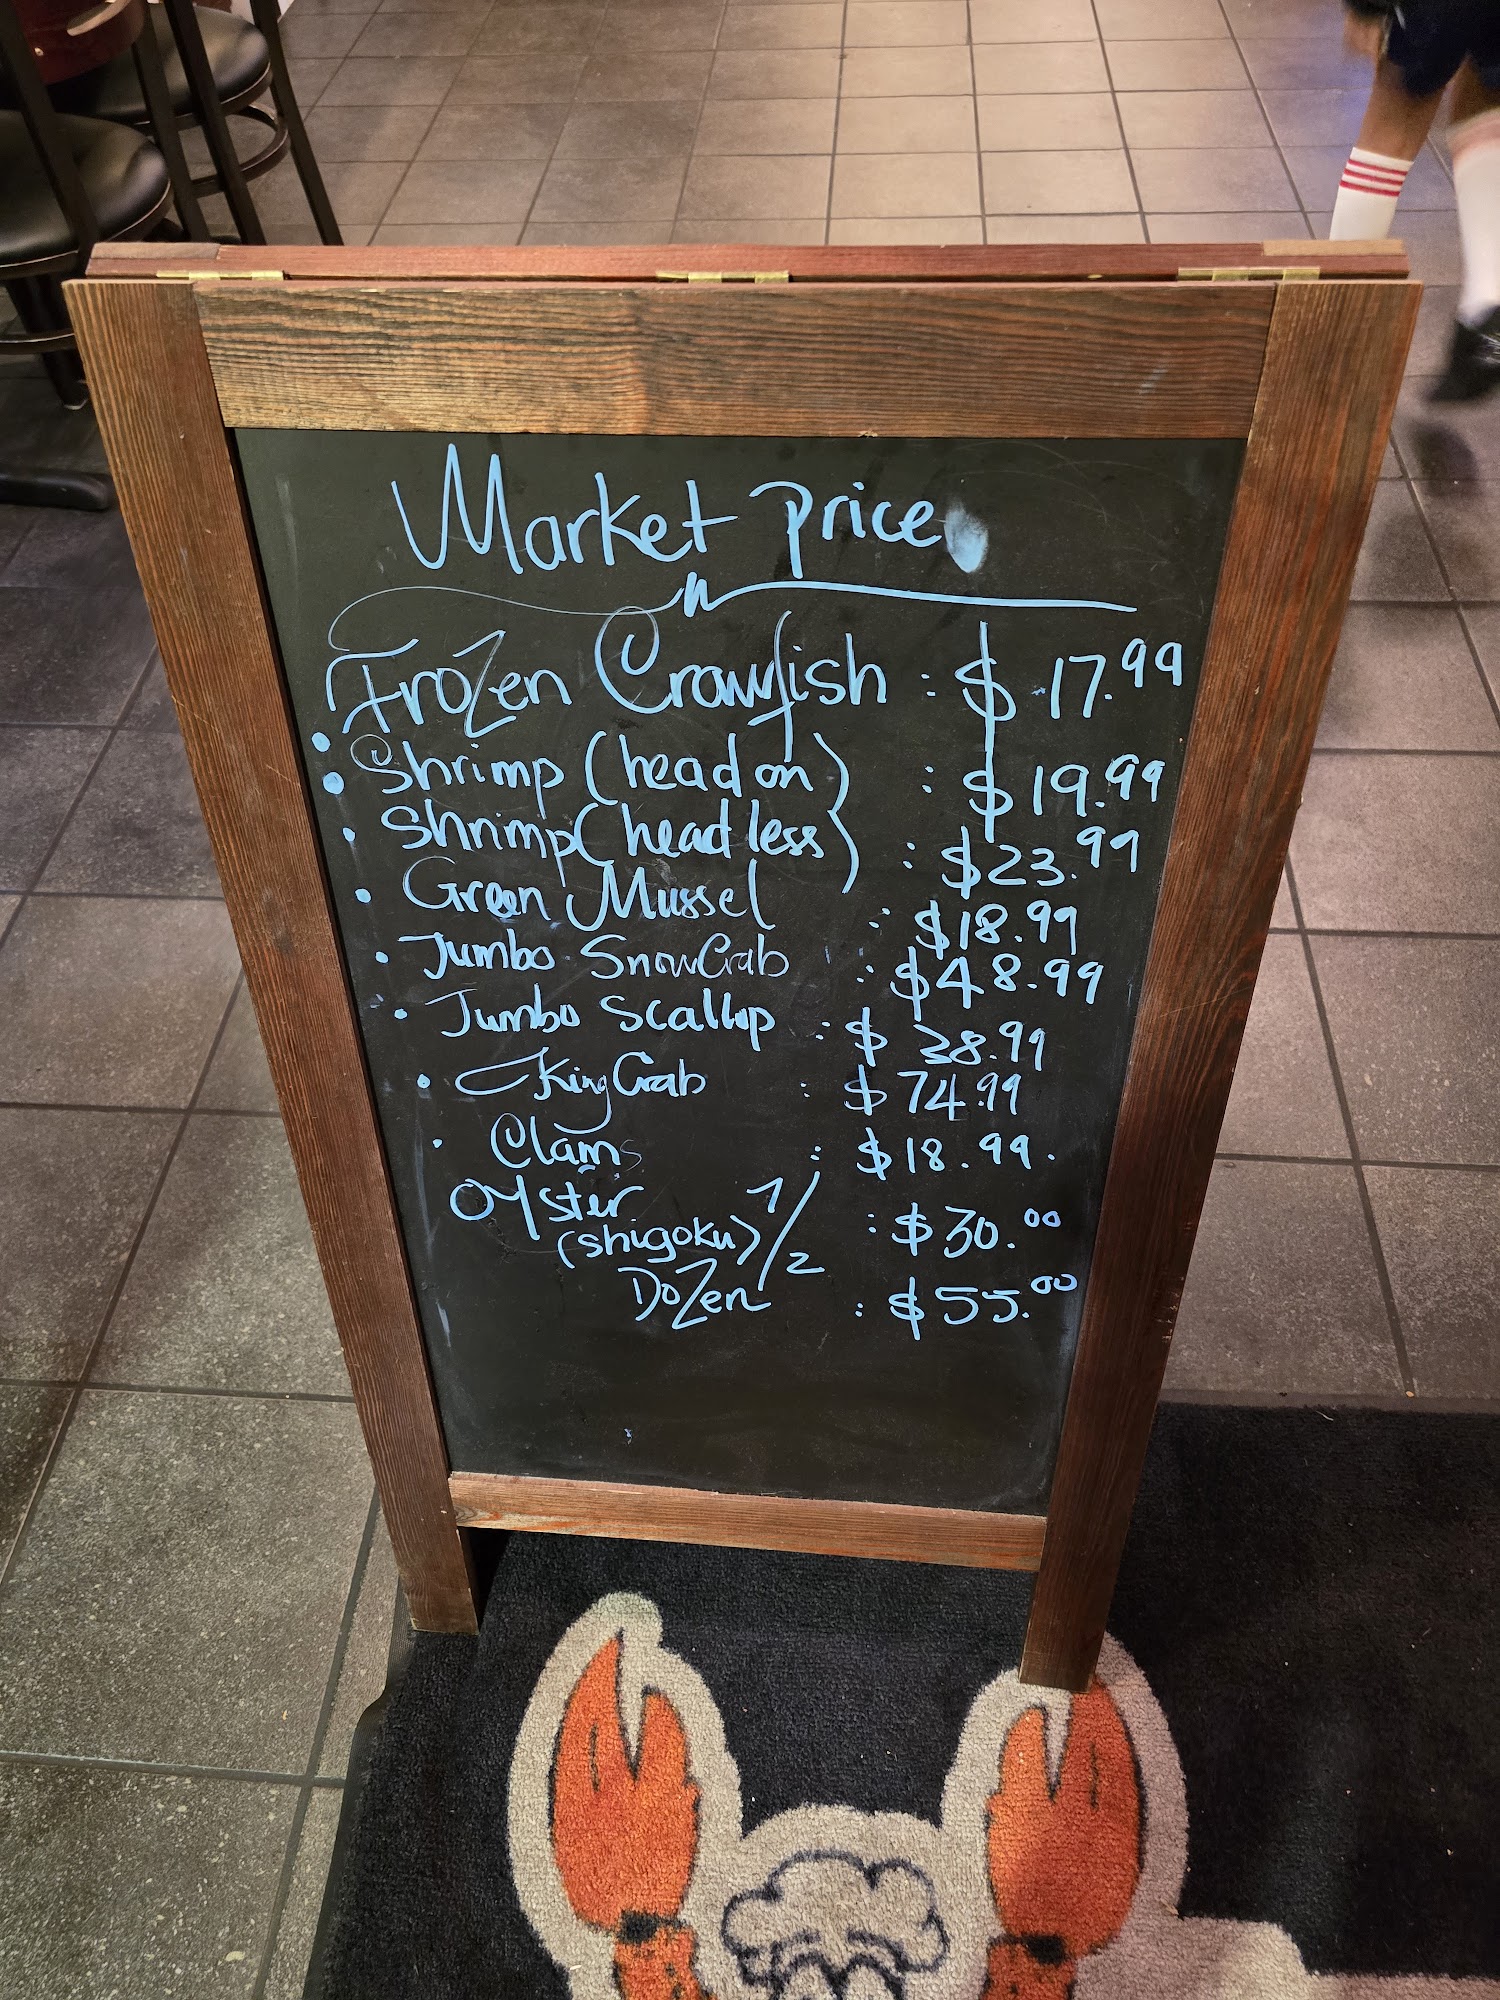 Market Price
Frozen Crawfish : $17.99
• Shrimp (head on) : $19.99
• Shrimp (headless) : $23.99
• Green Mussel : $18.99
• Jumbo SnowCrab : $48.99
• Jumbo Scallop : $38.99
• King Crab : $74.99
• Clams : $18.99.
Oyster (shigoku) 1/2 : $30.00
Dozen : $55.00